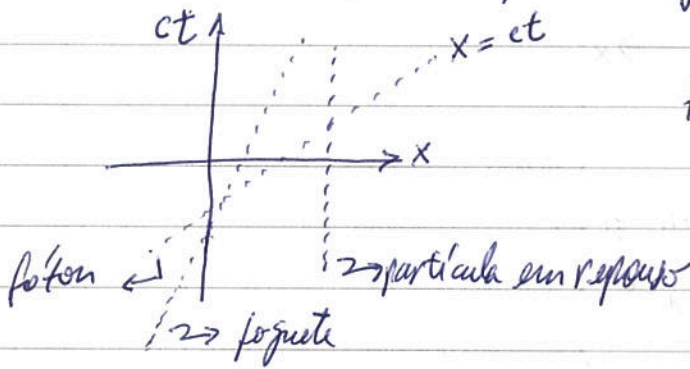 ct
x = ct
x
fóton
partícula em repouso
foguete